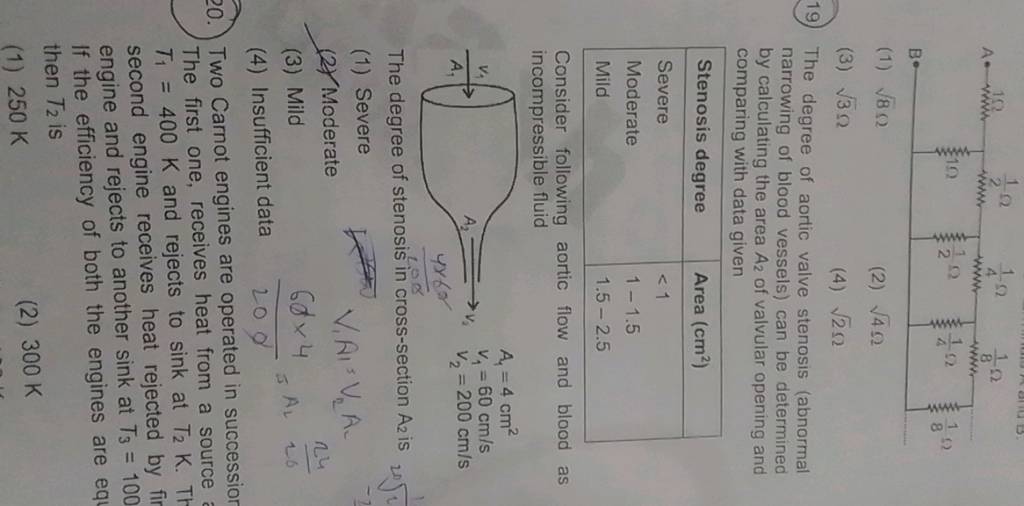 A
1Ω
1/2 Ω
1/4 Ω
1/8 Ω
1Ω
1/2 Ω
1/4 Ω
1/8 Ω
B
(1) √8 Ω (2) √4 Ω
(3) √3 Ω (4) √2 Ω
19 The degree of aortic valve stenosis (abnormal
narrowing of blood vessels) can be determined
by calculating the area A₂ of valvular opening and
comparing with data given
Stenosis degree Area (cm²)
Severe < 1
Moderate 1 – 1.5
Mild 1.5 – 2.5
Consider following aortic flow and blood as
incompressible fluid
A₁ = 4 cm²
v₁ = 60 cm/s
v₂ = 200 cm/s
v₁
A₁
A₂
v₂
4×60
200
The degree of stenosis in cross-section A₂ is
(1) Severe
(2) Moderate
(3) Mild
(4) Insufficient data
V₁A₁ = V₂A₂
60×4
200
= A₂
24
20
20. Two Carnot engines are operated in succession
The first one, receives heat from a source
T₁ = 400 K and rejects to sink at T₂ K.
second engine receives heat rejected by
engine and rejects to another sink at T₃ = 100
If the efficiency of both the engines are
then T₂ is
(1) 250 K (2) 300 K